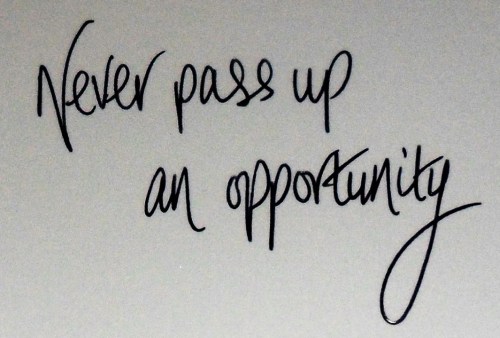 Never pass up
an opportunity